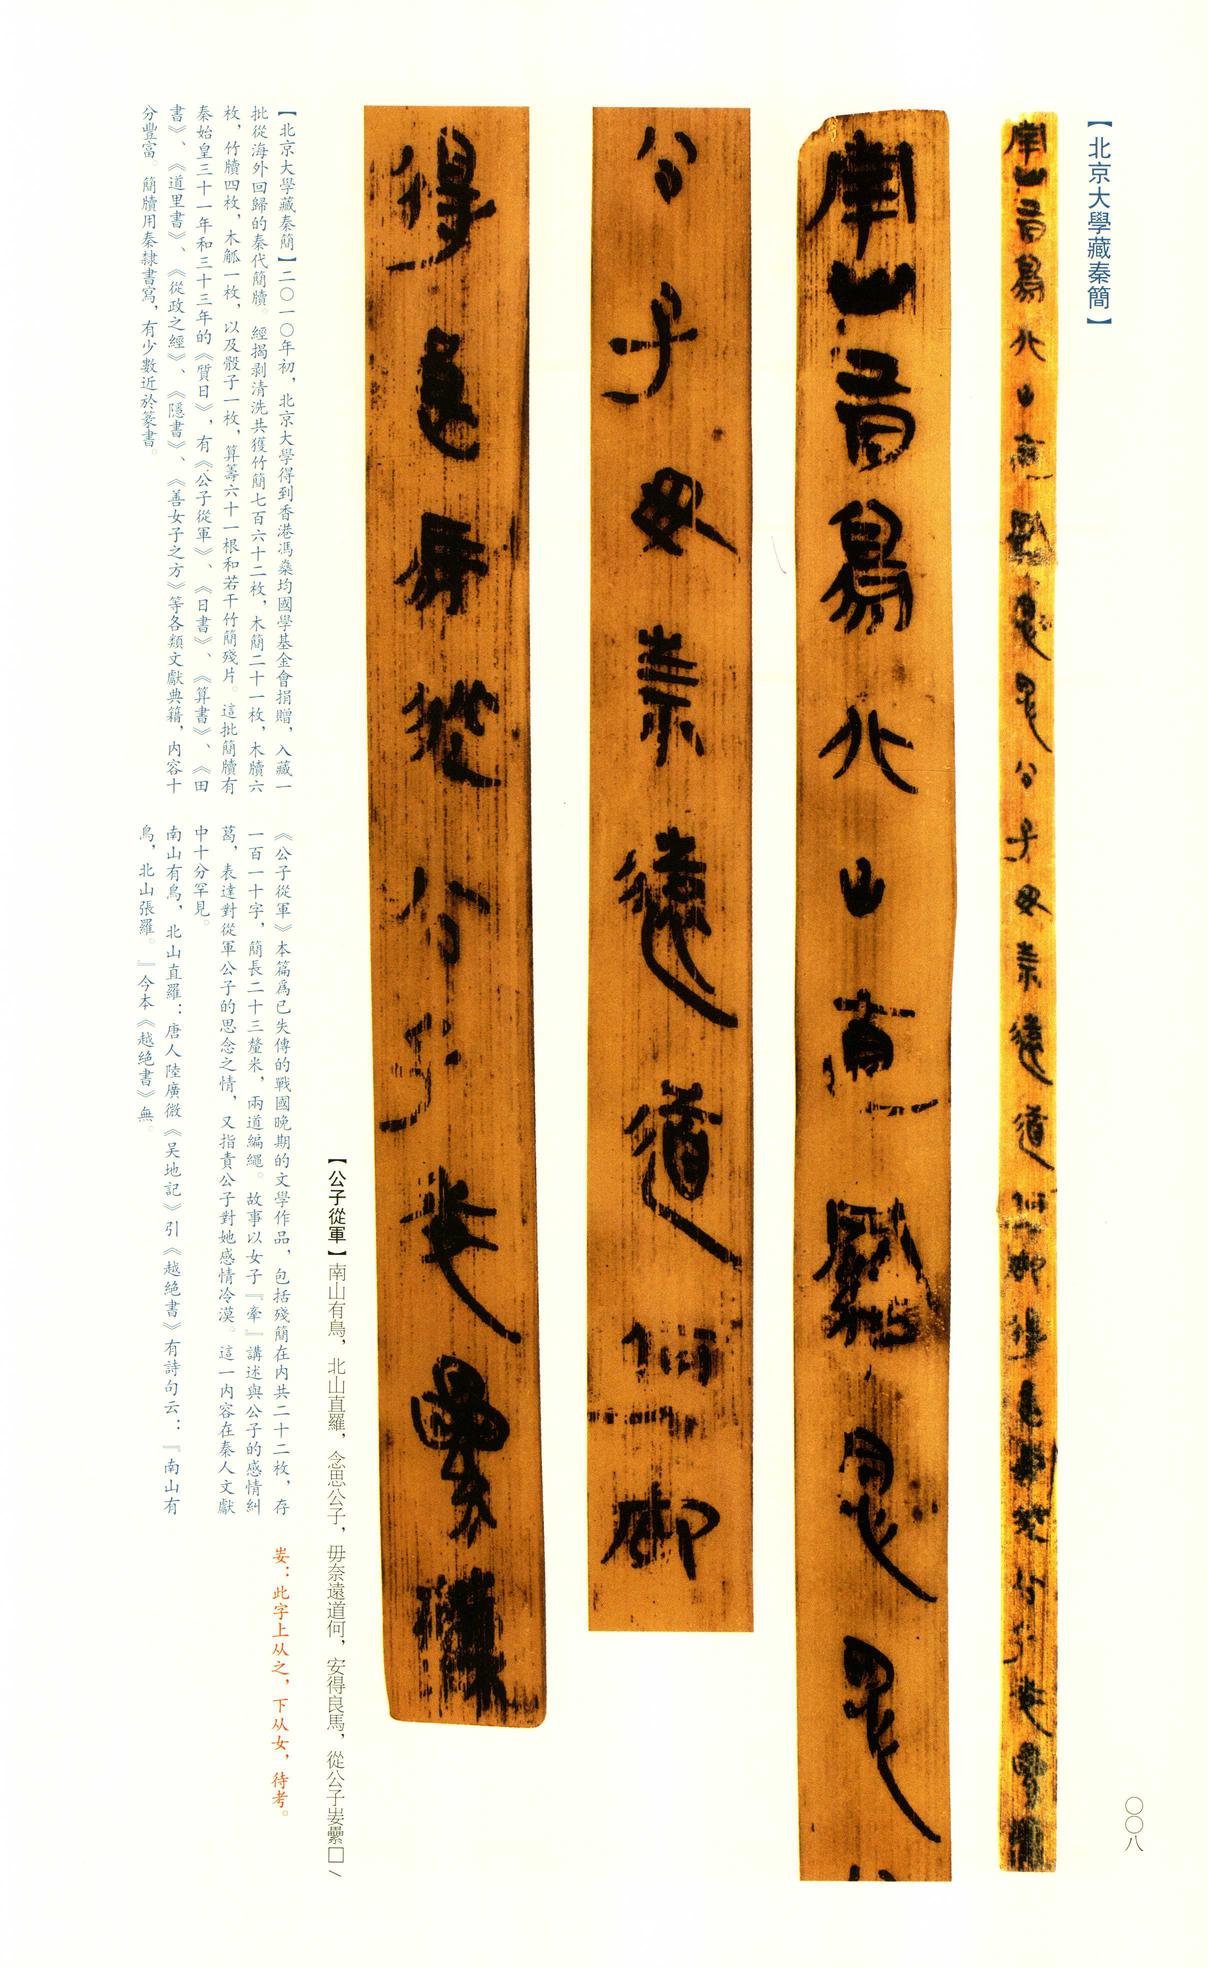 【北京大學藏秦簡】
〇〇八
南山有鳥北山直羅念思公
公子毋奈遠道何安
得良馬從公子
【公子從軍】南山有鳥，北山直羅，念思公子，毋奈遠道何，安得良馬，從公子㞷纍□／
【北京大學藏秦簡】二〇一〇年初，北京大學得到香港馮燊均國學基金會捐贈，入藏一
批從海外回歸的秦代簡牘。經揭剥清洗共獲竹簡七百六十二枚，木簡二十一枚，木牘六
枚，竹牘四枚，木觚一枚，以及骰子一枚，算籌六十一根和若干竹簡殘片。這批簡牘有
秦始皇三十一年和三十三年的《質日》，有《公子從軍》、《日書》、《算書》、《田
書》、《道里書》、《從政之經》、《隱書》、《善女子之方》等各類文獻典籍，内容十
分豐富。簡牘用秦隸書寫，有少數近於篆書。
《公子從軍》本篇爲已失傳的戰國晚期的文學作品，包括殘簡在内共二十二枚，存
一百一十字，簡長二十三釐米，兩道編繩。故事以女子『牽』講述與公子的感情糾
葛，表達對從軍公子的思念之情，又指責公子對她感情冷漠。這一内容在秦人文獻
中十分罕見。
南山有鳥，北山直羅：唐人陸廣微《吴地記》引《越絶書》有詩句云：『南山有
鳥，北山張羅。』今本《越絶書》無。
：此字上从之，下从女，待考。